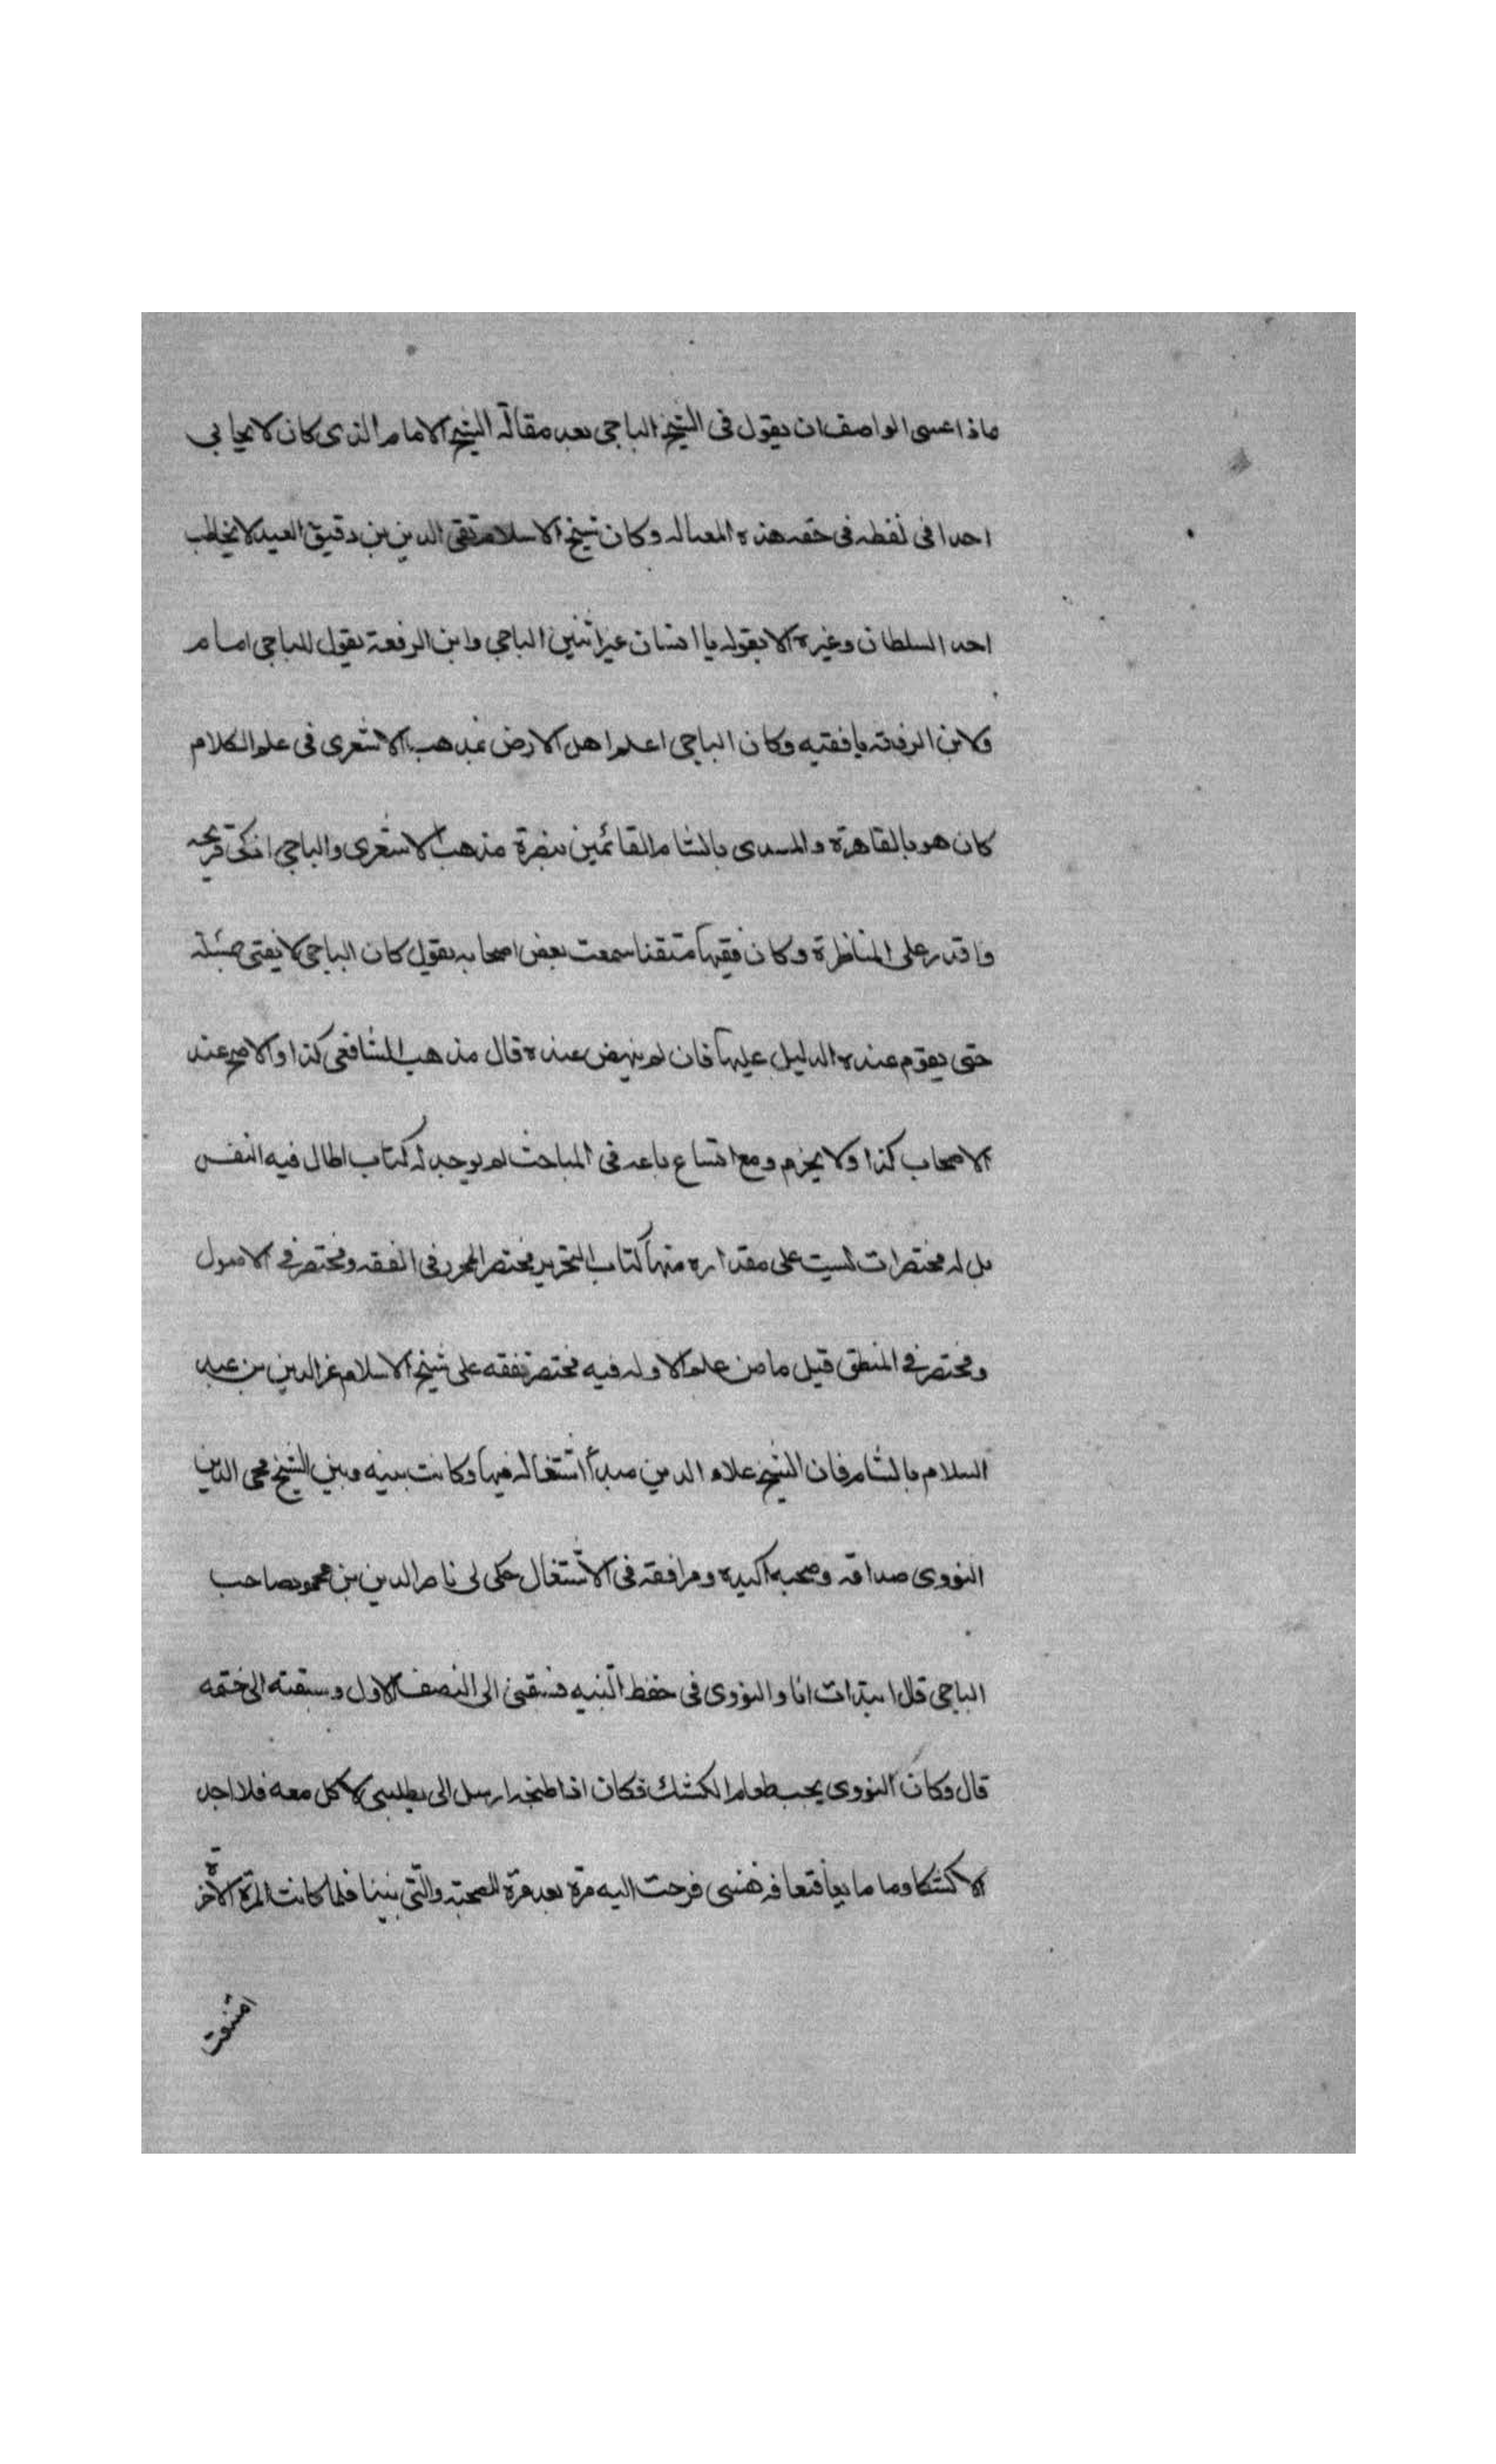 ماذا عسى الواصف ان يقول فى الشيخ الباجى بعد مقالة الشيخ الامام الذى كان لا يحابي
احدا فى لفظه فى حقه هذه المقاله وكان شيخ الاسلام تقى الدين بن دقيق العيد لا يخاطب
احد السلطان وغيره الا بقوله يا انسان غير اثنين الباجي وابن الرفعة يقول للباجى امام
ولابن الرفعه يا فقيه وكان الباجى اعلم اهل الارض بمذهب الاشعرى فى علم الكلام
كان هو بالقاهرة و بالشام القائمين بنصرة مذهب الاشعرى والباجى اذكى قريحه
واقدر على المناظرة وكان فقيها متقنا سمعت بعض اصحابه يقول كان الباجى لا يفتى بمسئلة
حتى يقوم عنده الدليل عليها فان لم ينهض عنده قال مذهب الشافعى كذا والاصح عند
الاصحاب كذا ولا يجزم ومع اتساع باعه فى المباحث لم يوجد له كتاب اطال فيه النفس
بل له مختصرات ليست على مقداره منها كتاب التحرير مختصر المحرر فى الفقه ومختصر في الاصول
ومختصر في المنطق قيل ما من علم الا وله فيه مختصر تفقه على شيخ الاسلام عز الدين بن عبد
السلام بالشام فان الشيخ علاء الدين مبدأ اشتغاله فيها وكانت بينه وبين الشيخ محى الدين
النووى صداقه وصحبه اكيده ومرافقه فى الاشتغال حكى لى ناصر الدين بن محمود صاحب
الباجى قال ابتدات انا والنووى فى حفظ التنبيه فسبقنى الى النصف الاول وسبقته الى ختمه
قال وكان النووى يحب طعام الكشك فكان اذا طبخه ارسل الى يطلبنى لاكل معه فلا اجد
الا كشكا وما مايعا فتعافه نفسى فرحت اليه مرة بعد مرة للصحبة والتى بيننا فلما كانت المرة الاخرة
امتنعت